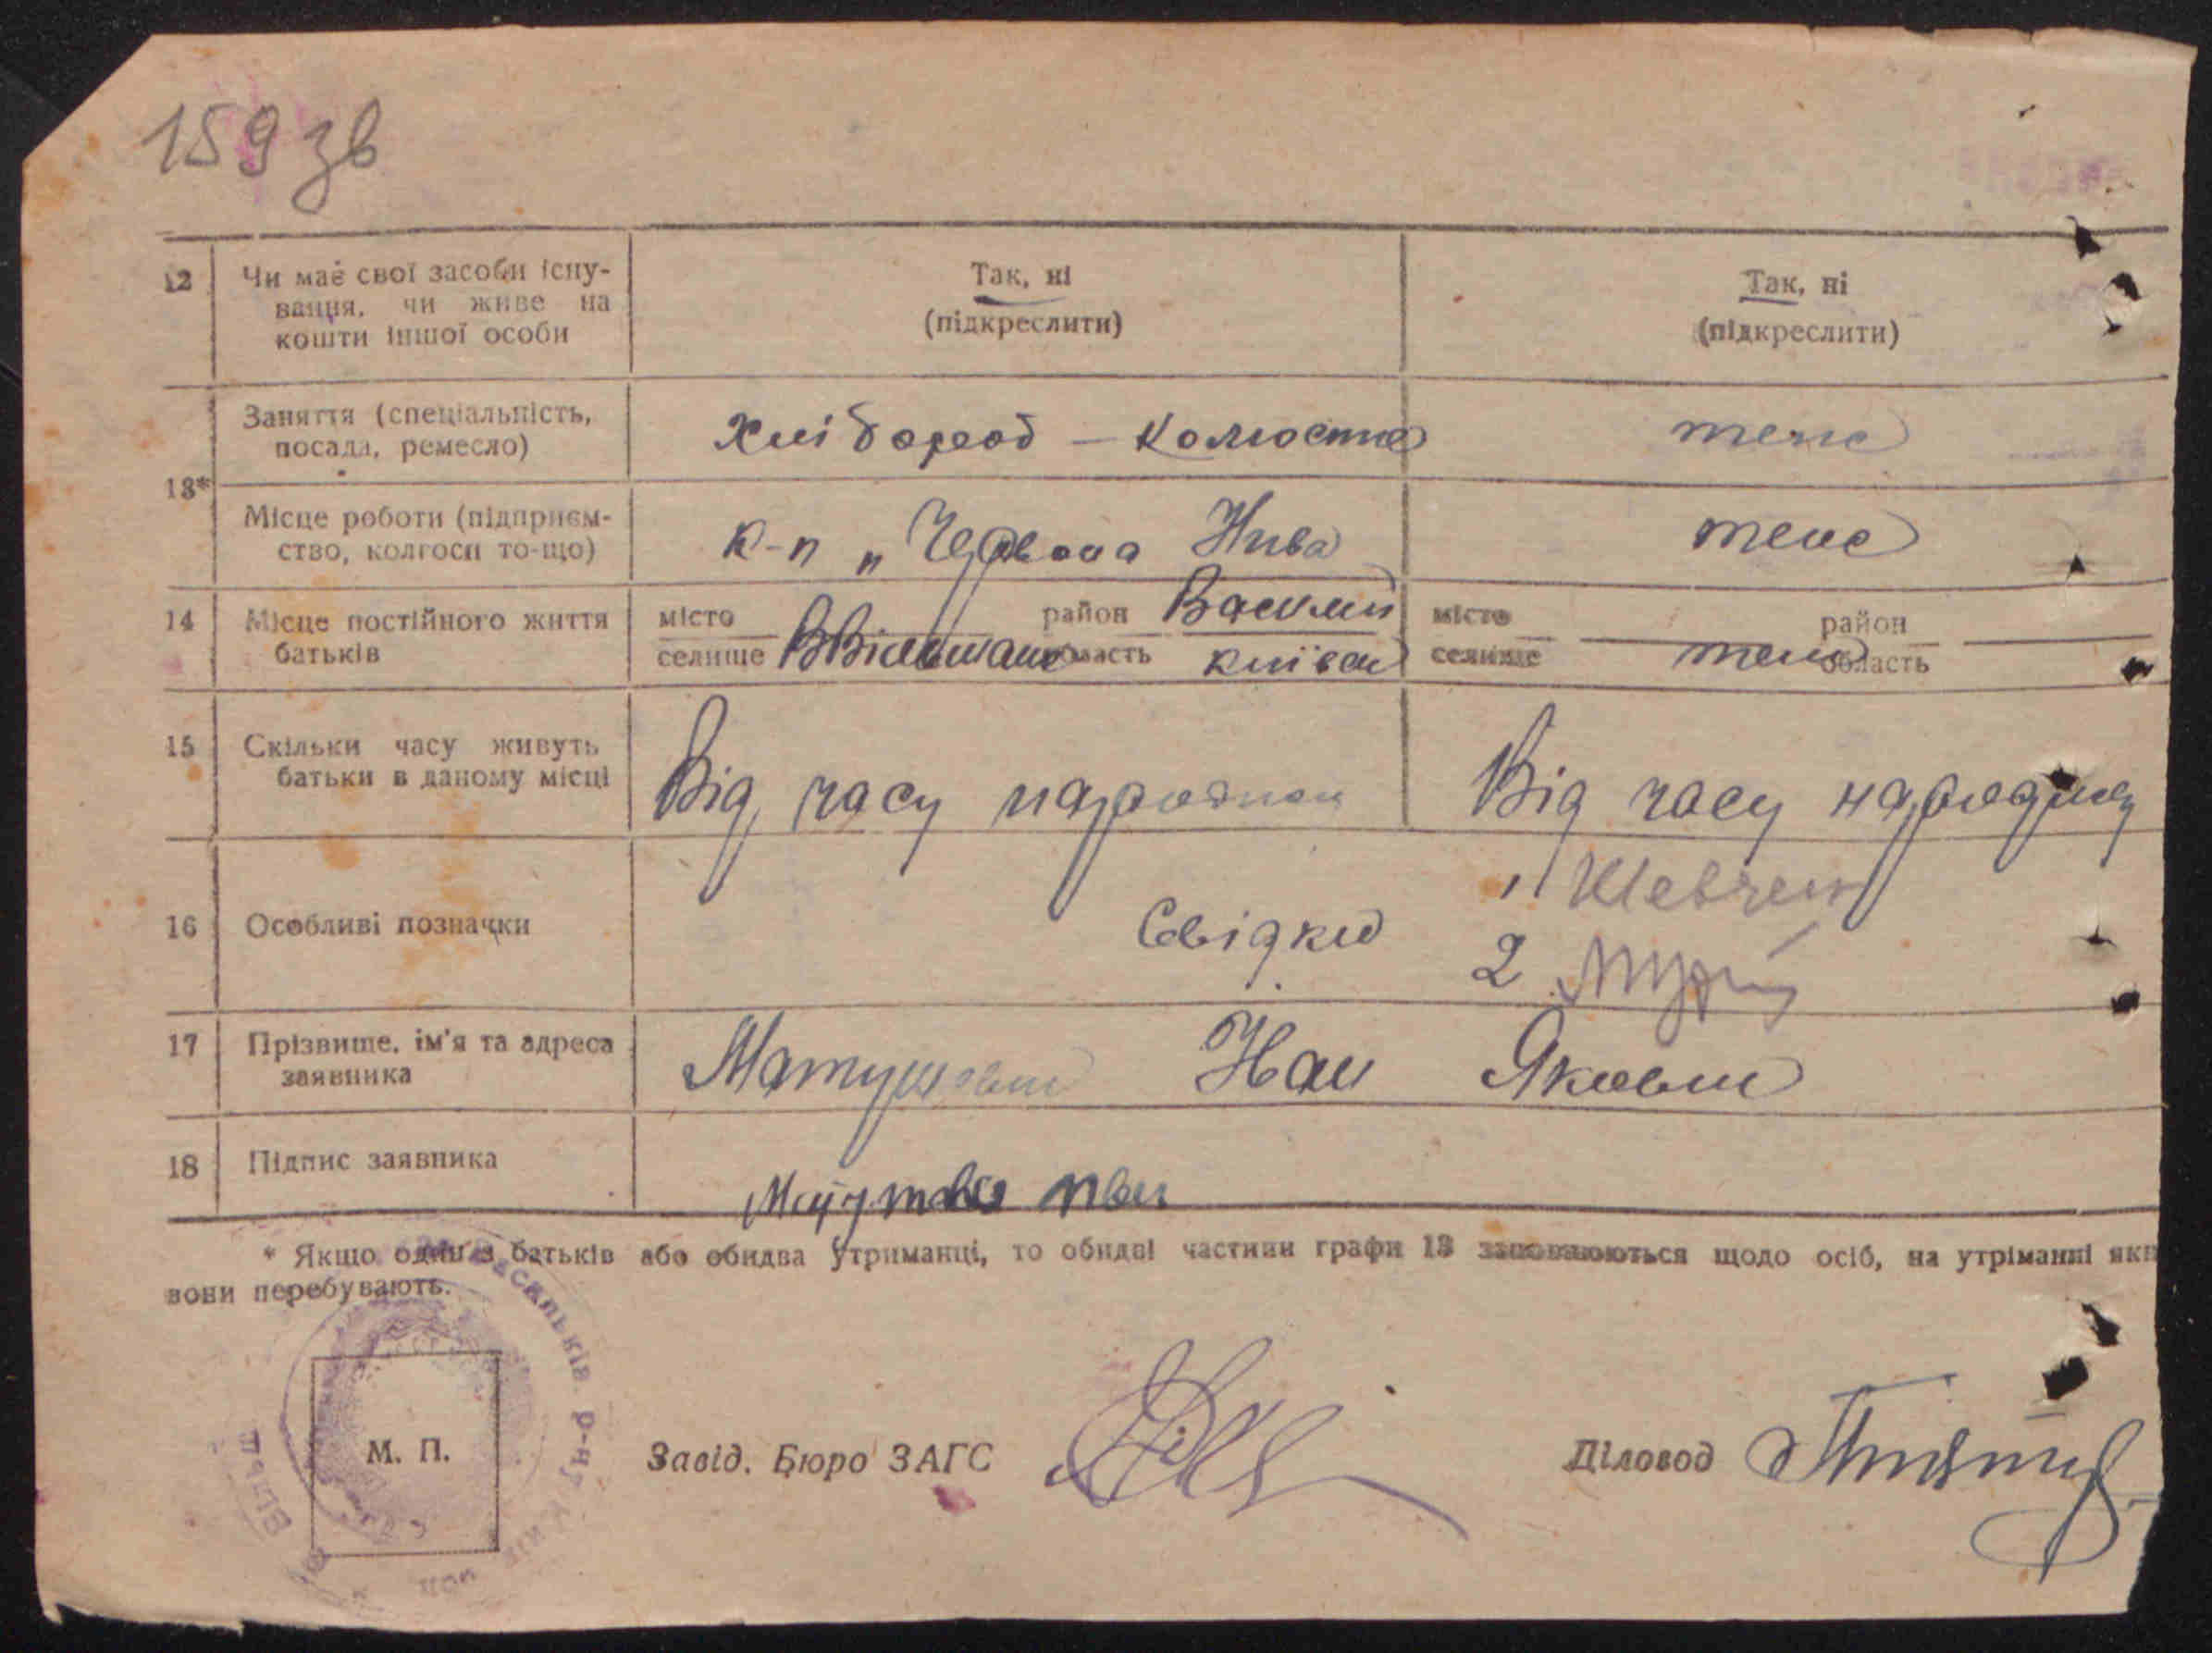 159 зв
12 Чи має свої засоби існу-
вання, чи живе на
кошти іншої особи
Так, ні
(підкреслити)
Так, ні
(підкреслити)
13*
Заняття (спеціальність,
посада, ремесло)
Хлібороб – колгосп
теж
Місце роботи (підприєм-
ство, колгосп то-що)
к-п „Червона Нива
теж
14 Місце постійного життя
батьків
місто район Васильк
селище ВВільшанс область Київськ
місто район
селище теж область
15 Скільки часу живуть
батьки в даному місці
Від часу народжен
Від часу народжен
16 Особливі позначки
Свідки
1 Шевчен
2
17 Прізвище, ім'я та адреса
заявника
Якович
18 Підпис заявника
* Якщо один з батьків або обидва утриманці, то обидві частини графи 13 заповнюються щодо осіб, на утріманні яки
вони перебувають.
Васильків р-ну
М. П.
Завід. Бюро ЗАГС
Діловод